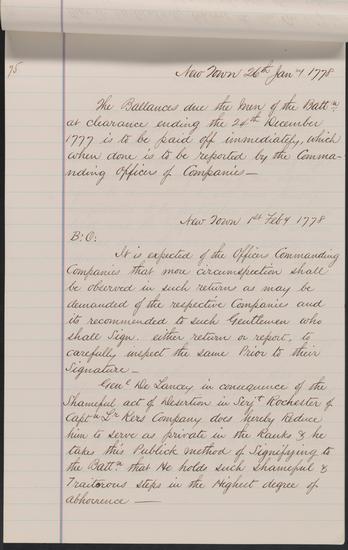 75
New Town 26th Jany 1778
The Ballances due the Men of the Battn.
at clearance ending the 24th December
1777 is to be paid off immediately, which
when done is to be reported by the Comma-
nding Officer of Companies—
New Town 1st Feby 1778
B: O:
It is expected of the Officers Commanding
Companies that more circumspection shall
be observed in such return as may be
demanded of the respective Companies and
its recommended to such Gentlemen who
shall Sign. either return or report, to
carefully inspect the same Prior to their
Signature—
Genl De Lancey in consequence of the
Shameful act of Desertion in Serjt Rochester of
Captn Kers Company does hereby Reduce
him to serve as private in the Ranks & he
takes this Publick method of Signifying to
the Battn. that He holds such Shameful &
Traitorous steps in the Highest degree of
abhorrence —